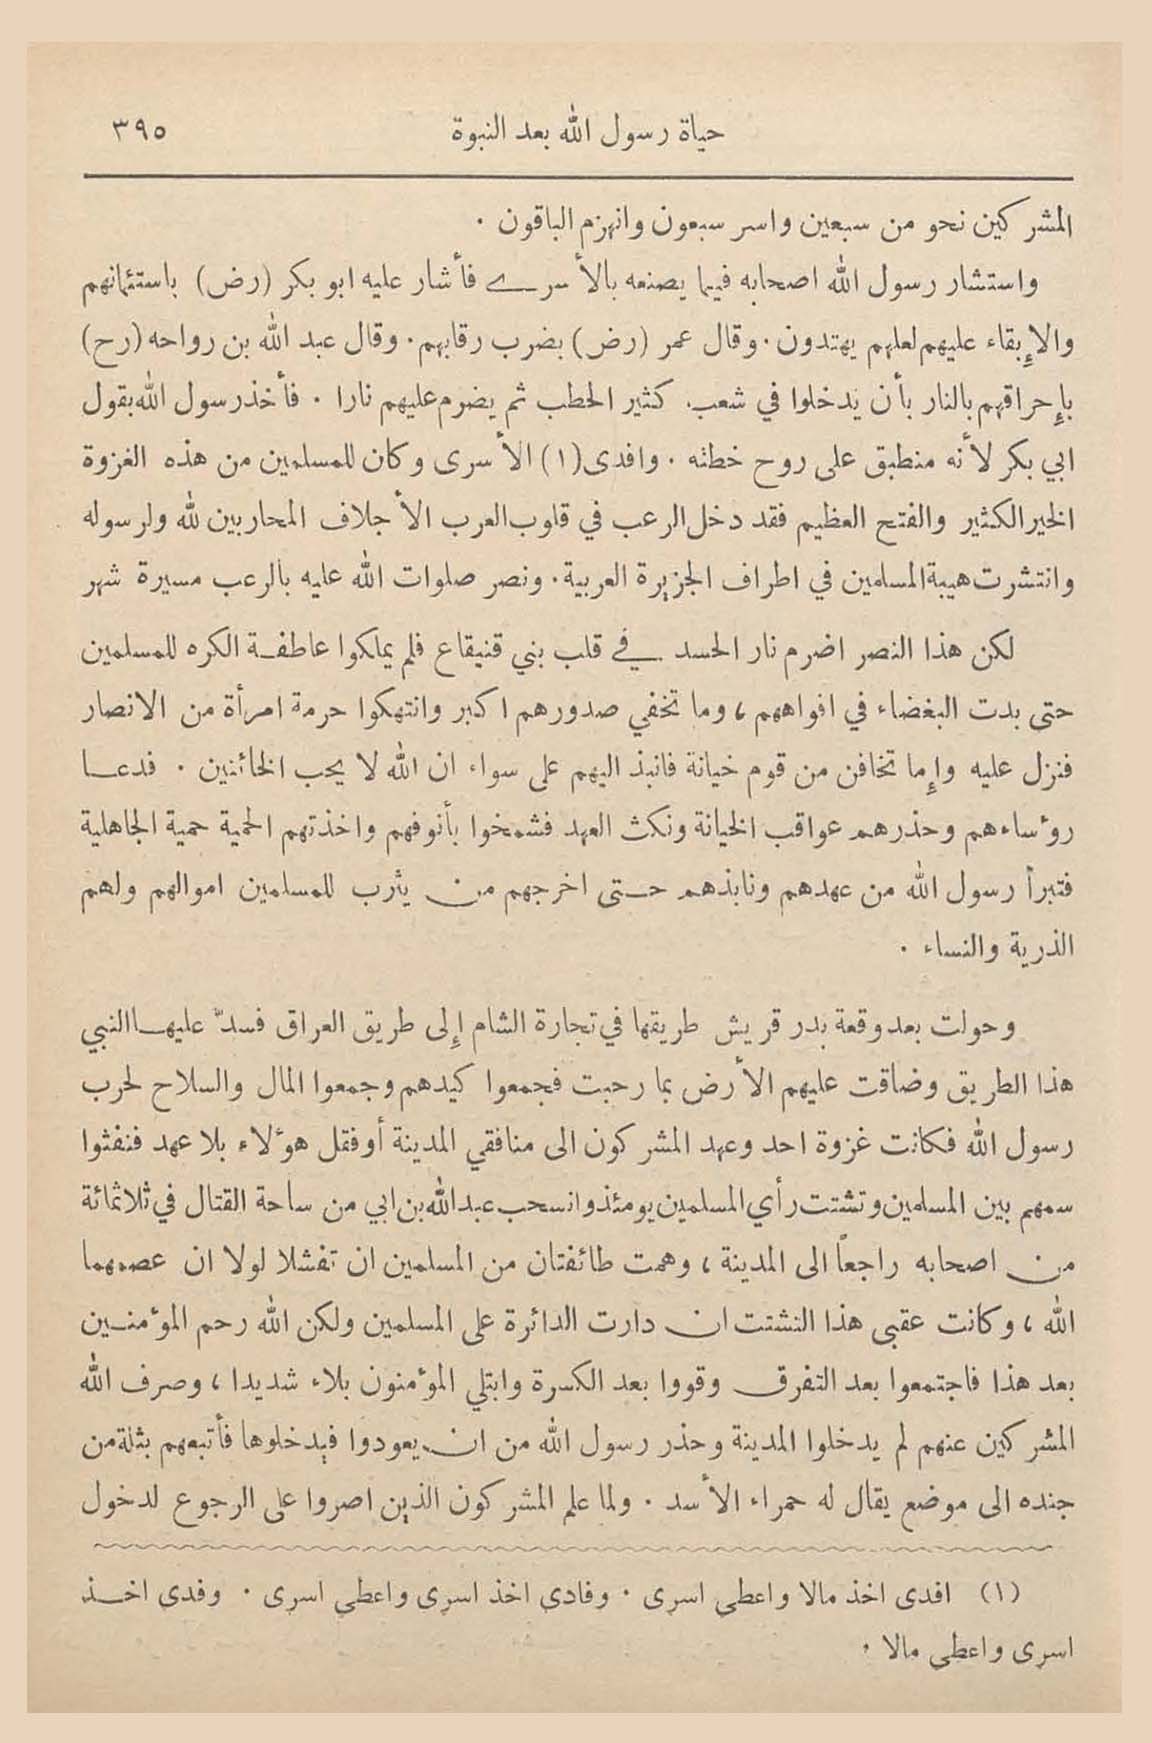 حياة رسول الله بعد النبوة ٣٩٥
المشركين نحو من سبعين واسر سبعون وانهزم الباقون .
واستشار رسول الله اصحابه فيما يصنعه بالأسرى فأشار عليه ابو بكر (رض) باستئمانهم
والإبقاء عليهم لعلهم يهتدون . وقال عمر (رض) بضرب رقابهم . وقال عبد الله بن رواحه (رح)
بإحراقهم بالنار بأن يدخلوا في شعب كثير الحطب ثم يضرم عليهم نارا . فأخذ رسول الله بقول
ابي بكر لأنه منطبق على روح خطته . وافدى (١) الأسرى وكان للمسلمين من هذه الغزوة
الخير الكثير والفتح العظيم فقد دخل الرعب في قلوب العرب الأجلاف المحاربين لله ولرسوله
وانتشرت هيبة المسلمين في اطراف الجزيرة العربية . ونصر صلوات الله عليه بالرعب مسيرة شهر
لكن هذا النصر اضرم نار الحسد في قلب بني قنيقاع فلم يملكوا عاطفة الكره للمسلمين
حتى بدت البغضاء في افواههم ، وما تخفي صدورهم اكبر وانتهكوا حرمة امرأة من الانصار
فنزل عليه وإما تخافن من قوم خيانة فانبذ اليهم على سواء ان الله لا يحب الخائنين . فدعا
رؤساءهم وحذرهم عواقب الخيانة ونكث العهد فشمخوا بأنوفهم واخذتهم الحمية حمية الجاهلية
فتبرأ رسول الله من عهدهم ونابذهم حتى اخرجهم من يثرب للمسلمين اموالهم ولهم
الذرية والنساء .
وحولت بعد وقعة بدر قريش طريقها في تجارة الشام إلى طريق العراق فسدّ عليها النبي
هذا الطريق وضاقت عليهم الأرض بما رحبت فجمعوا كيدهم وجمعوا المال والسلاح لحرب
رسول الله فكانت غزوة احد وعهد المشركون الى منافقي المدينة أو فقل هؤلاء بلا عهد فنفثوا
سمهم بين المسلمين وتشتت رأي المسلمين يومئذ وانسحب عبد الله بن ابي من ساحة القتال في ثلاثمائة
من اصحابه راجعاً الى المدينة ، وهمت طائفتان من المسلمين ان تفشلا لولا ان عصمهما
الله ، وكانت عقبى هذا التشتت ان دارت الدائرة على المسلمين ولكن الله رحم المؤمنين
بعد هذا فاجتمعوا بعد التفرق وقووا بعد الكسرة وابتلي المؤمنون بلاء شديدا ، وصرف الله
المشركين عنهم لم يدخلوا المدينة وحذر رسول الله من ان يعودوا فيدخلوها فأتبعهم بثلة من
جنده الى موضع يقال له حمراء الأسد . ولما علم المشركون الذين اصروا على الرجوع لدخول
(١) افدى اخذ مالا واعطى اسرى . وفادى اخذ اسرى واعطى اسرى . وفدى اخذ
اسرى واعطى مالا .